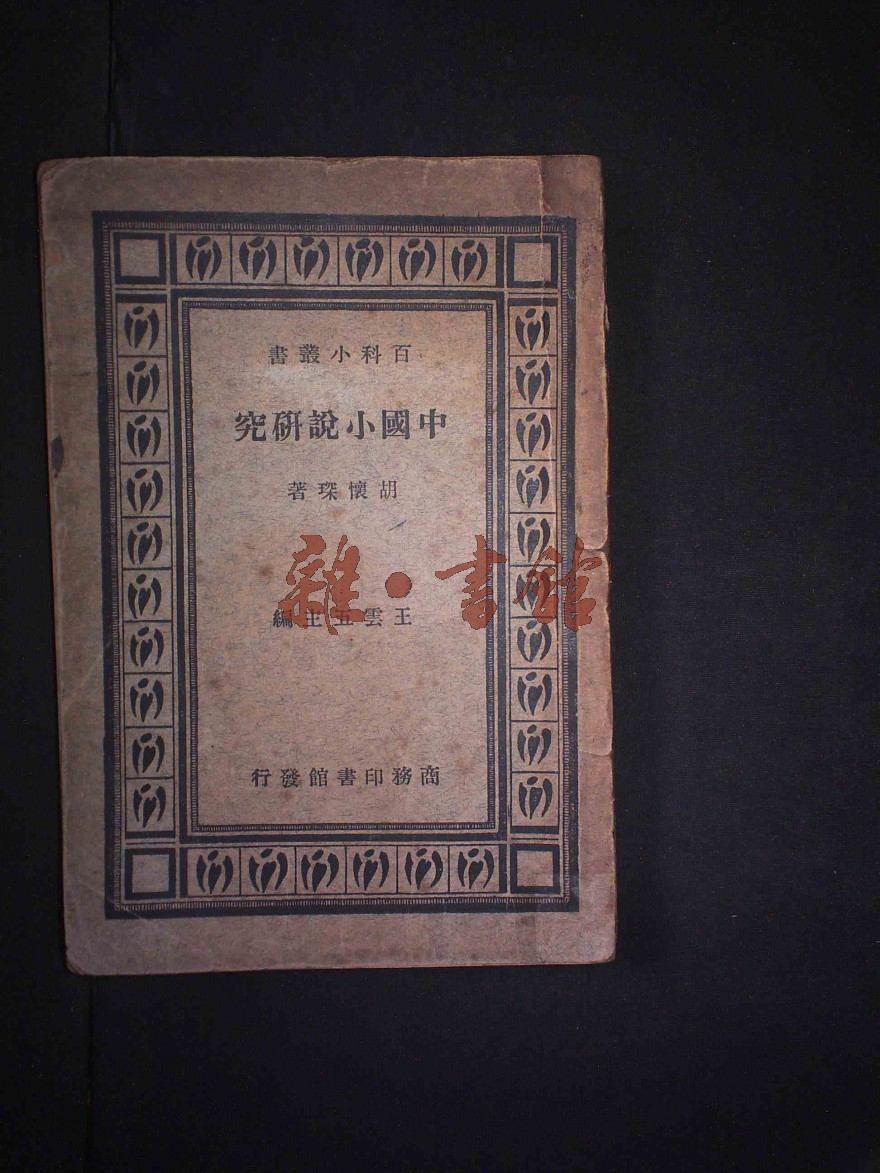 百科小叢書
中國小說研究
胡懷琛著
雜·書館
王雲五主編
商務印書館發行